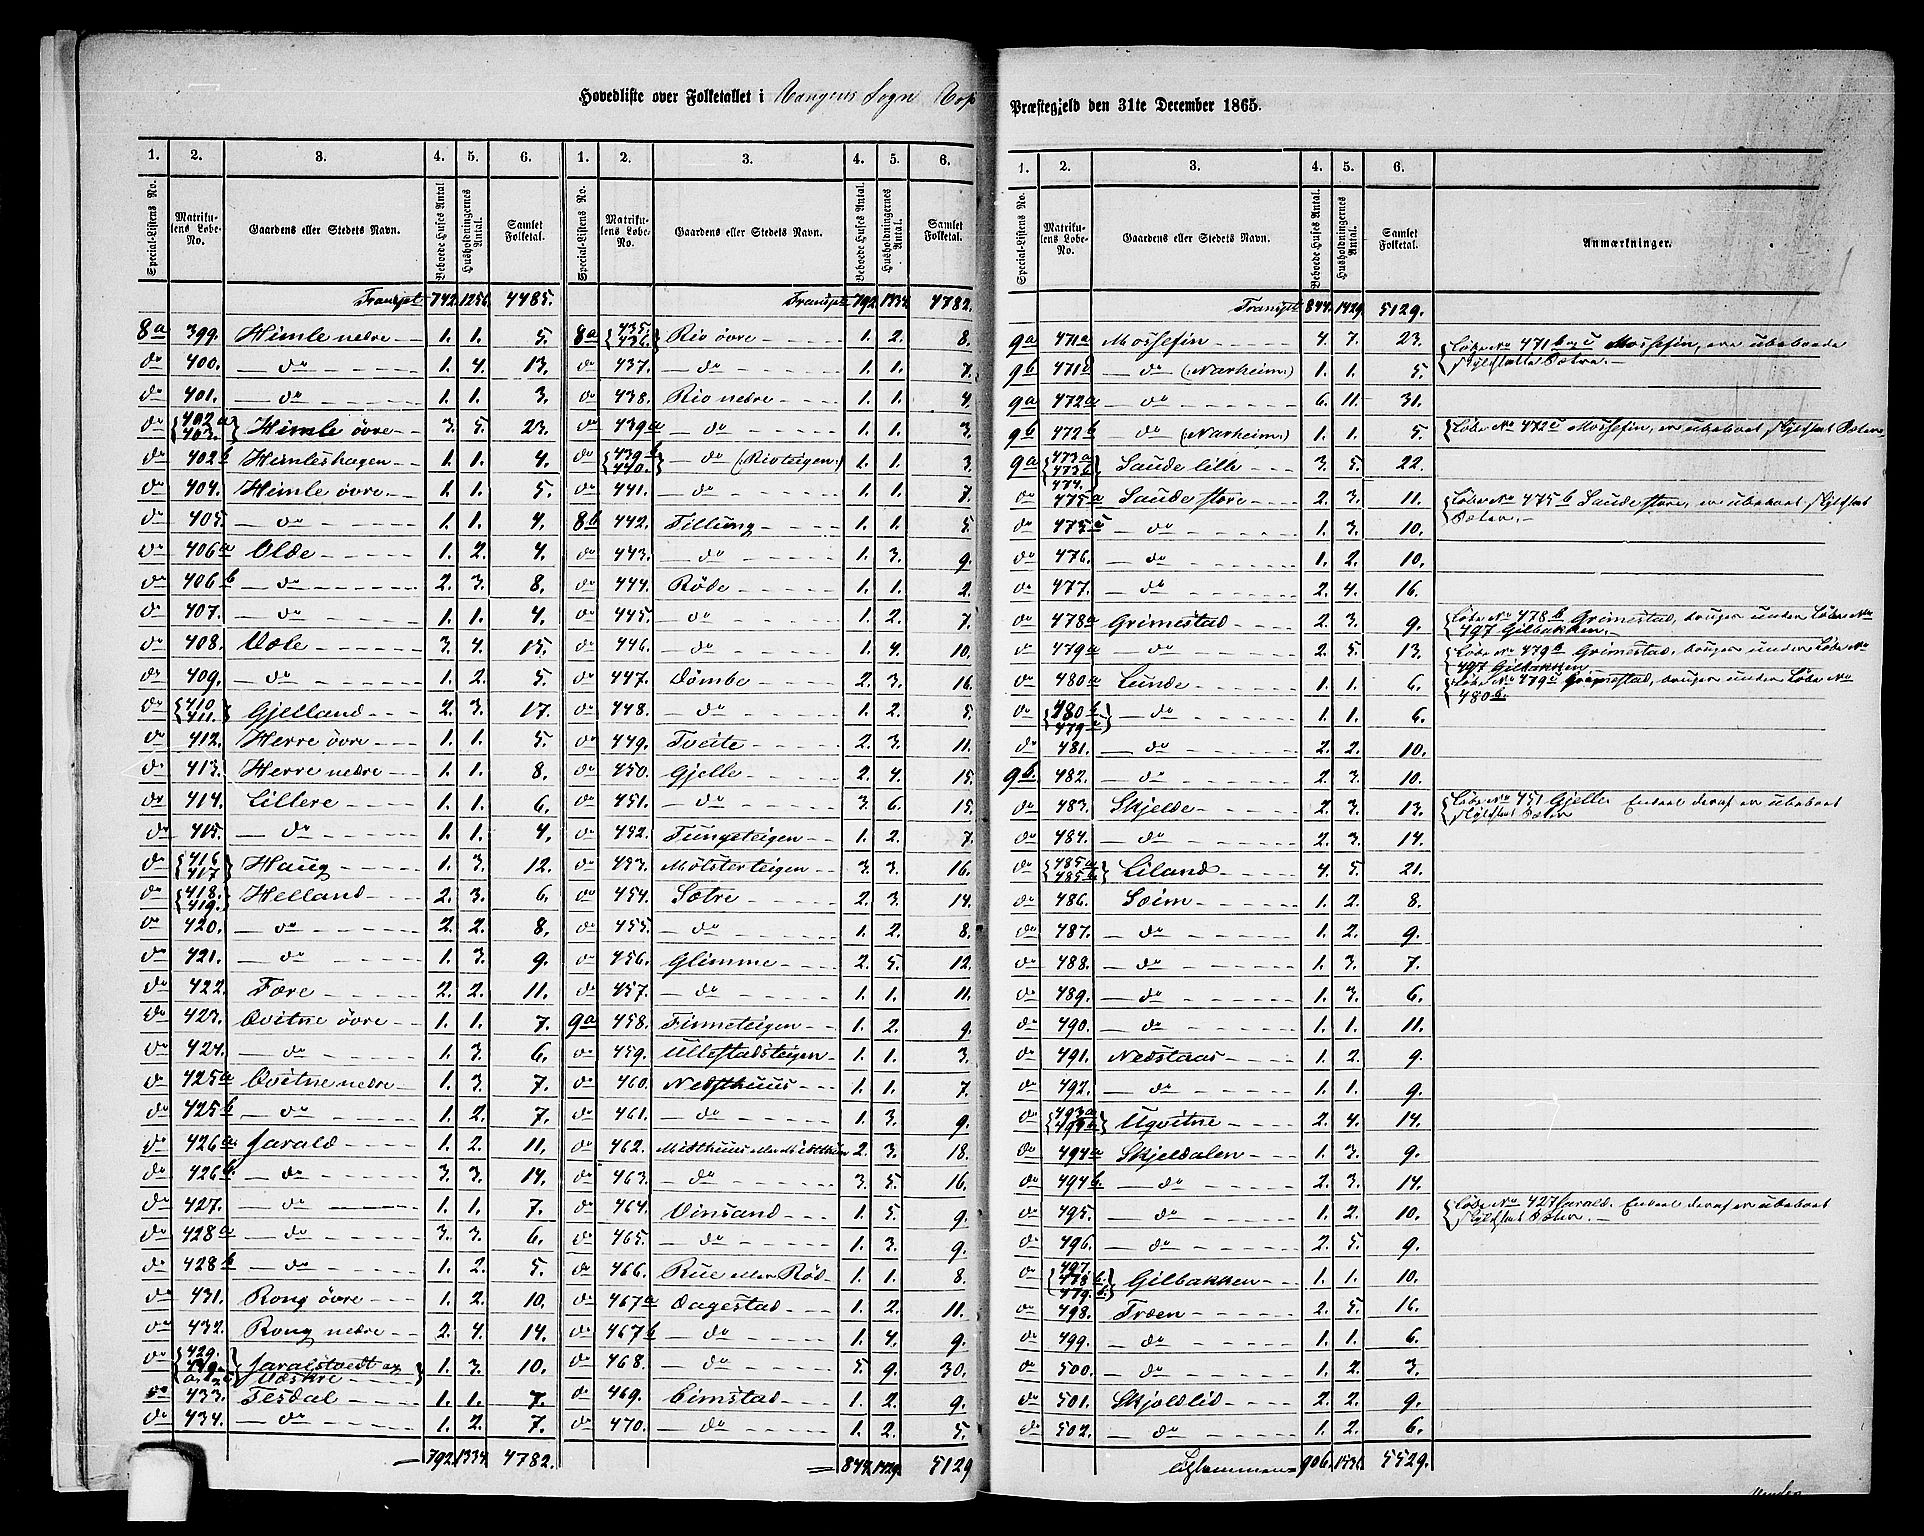 Hovedliste over Folketallet i Vangens Sogn
Præstegjeld den 31te December 1865.
1. 2. 3. 4. 5. 6.
Special-Listens No. Matrikulens Løbe-No. Gaardens eller Stedets Navn. Beboede Huses Antal Husholdningernes Antal. Samlet Folketal.
Transpt 742. 1256. 4485.
8a 399. Himle nedre 1. 1. 5.
do 400. do 1. 4. 13.
do 401. do 1. 1. 3.
do 402a 403. Himle övre 3. 5. 23.
do 402b Himleshagen 1. 1. 4.
do 404. Himle övre 1. 1. 5.
do 405. do 1. 1. 4.
do 406a Olde 1. 2. 4.
do 406b do 2. 3. 8.
do 407. do 1. 1. 4.
do 408. Væle 3. 4. 15.
do 409. do 1. 2. 5.
do 410. 411. Gjelland 2. 3. 17.
do 412. Herre övre 1. 1. 5.
do 413. Herre nedre 1. 1. 8.
do 414. Lillere 1. 1. 6.
do 415. do 1. 1. 4.
do 416 417 Haug 1. 3. 12.
do 418. 419. Helland 2. 3. 6.
do 420. do 2. 2. 8.
do 421. do 1. 3. 9.
do 422. Fære 2. 2. 11.
do 423. Qvitne övre 1. 1. 7.
do 424. do 1. 3. 6.
do 425a Qvitne nedre 1. 3. 7.
do 425b do 1. 2. 7.
do 426a. Jarald 1. 2. 11.
do 426b. do 3. 3. 14.
do 427. do 1. 1. 7.
do 428a do 3. 3. 6.
do 428b do 1. 2. 5.
do 431. Rong övre 1. 2. 10.
do 432. Rong nedre 2. 4. 14.
do 429. Jaralstvedt og 1. 3. 10.
do 433. Tesdal 1. 1. 7.
do 434. do 1. 2. 7.
792. 1334. 4782.
1. 2. 3. 4. 5. 6.
Special-Listens No. Matrikulens Løbe-No. Gaardens eller Stedets Navn. Beboede Huses Antal. Husholdningernes Antal. Samlet Folketal.
Transpt 792. 1334. 4782.
8a 435. 436. Rio övre 1. 2. 8.
do 437. do 1. 1. 7.
do 438. Rio nedre 1. 1. 4.
do 439a do 1. 1. 3.
do 439b 440. do (Rioteigen) 1. 1. 3.
do 441. do 1. 1. 7.
8b 442. Tillung 1. 1. 5.
do 443. do 1. 3. 9.
do 444. Röde 1. 1. 2.
do 445. do 1. 2. 7.
do 446. do 1. 4. 10.
do 447. Dömbe 2. 3. 16.
do 448. do 1. 2. 5.
do 449. Tveite 2. 3. 11.
do 450. Gjelle 2. 4. 15.
do 451. do 3. 6. 15.
do 452. Tungeteigen 1. 2. 7.
do 453. Mölsterteigen 3. 3. 16.
do 454. Sætre 2. 3. 14.
do 455. do 1. 2. 8.
do 456. Glimme 2. 5. 12.
do 457. do 1. 1. 11.
9a 458. Finneteigen 1. 2. 9.
do 459. Ullestadsteigen 1. 1. 3.
do 460. Nedsthuus 1. 1. 7.
do 461. do 1. 3. 9.
do 462. Midthuus eller Midtthun 2. 3. 18.
do 463. do 3. 5. 16.
do 464. Vinsand 1. 5. 9.
do 465. do 1. 3. 9.
do 466. Rue eller Röd 1. 1. 8.
do 467a Dagestad 1. 2. 11.
do 467b do 1. 4. 9.
do 468. do 5. 9. 30.
do 469. Eimstad 1. 2. 9.
do 470. do 1. 2. 5.
844. 1429. 5129
1. 2. 3. 4. 5. 6.
Special-Listens No. Matrikulens Løbe-No. Gaardens eller Stedets Navn. Beboede Huses Antal. Husholdningernes Antal. Samlet Folketal. Anmærkninger.
Transpt 844. 1429. 5129.
9a 471a Mossefin 4. 7. 23. Löbe No 471b og c Mossefin, ere ubeboede
9b 471d do (Narheim) 1. 1. 5.
9a 472a do 6. 11. 31.
9b 472b do (Narheim) 1. 1. 5. Löbe No 472c Mossefin, er ubeboet
9a 473a 473b 474. Saude lille 3. 5. 22.
do 475a Saude store 2. 3. 11. Löbe No 475b Saude store, er ubeboet
do 475c do 1. 3. 10.
do 476. do 1. 2. 10.
do 477. do 2. 4. 16.
do 478a Grimestad 2. 3. 9. Löbe No 478b Grimestad, bruges under Löbe No 497 Gilbakken.
do 479a do 2. 5. 13. Löbe No 479b Grimestad, bruges under Löbe No 497 Gilbakken
do 480a Lunde 1. 1. 6. Löbe No 479c Grimestad, bruges under Löbe No 480b.
do 480b 479c do 1. 1. 6.
do 481. do 2. 2. 10.
9b. 482. do 2. 3. 10.
do 483. Skjelde 2. 3. 13. Löbe No 451 Gjelle Endeel deraf er ubeboet
do 484. do 2. 3. 14.
do 485a 485b Liland 4. 5. 21.
do 486. Söim 1. 2. 8.
do 487. do 1. 2. 9.
do 488. do 1. 3. 7.
do 489. do 1. 3. 6.
do 490. do 1. 1. 11.
do 491. Nedstaas 1. 2. 9.
do 492. do 1. 1. 9.
do 493a 493b Ugvitne 2. 4. 14.
do 494a Skjeldalen 1. 3. 9.
do 494b. do 2. 3. 14.
do 495. do 1. 2. 10. Löbe No 427 Jarald. Endeel deraf er ubeboet
do 496. do 2. 5. 9.
do 497. 478b. 479b. Gilbakken 1. 1. 10.
do 498. Træen 2. 5. 16.
do 499. do 1. 1. 6.
do 500. do 1. 2. 3.
do 501. Skjoldlid 2. 2. 9.
do 502. do 1. 2. 6.
Tilsammen 906. 1536. 5529.